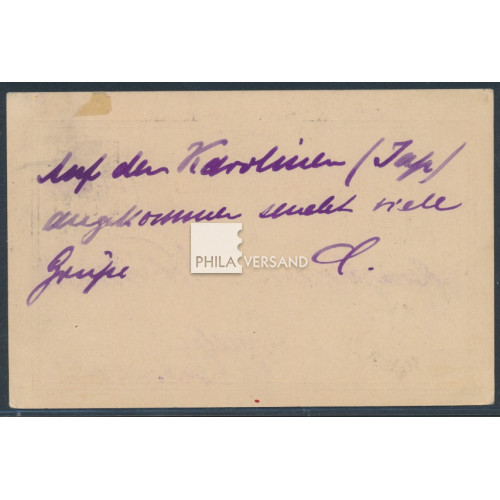 Auf den Karolinen (Jap)
angekommen sendet viele
Grüße C.
PHILA VERSAND